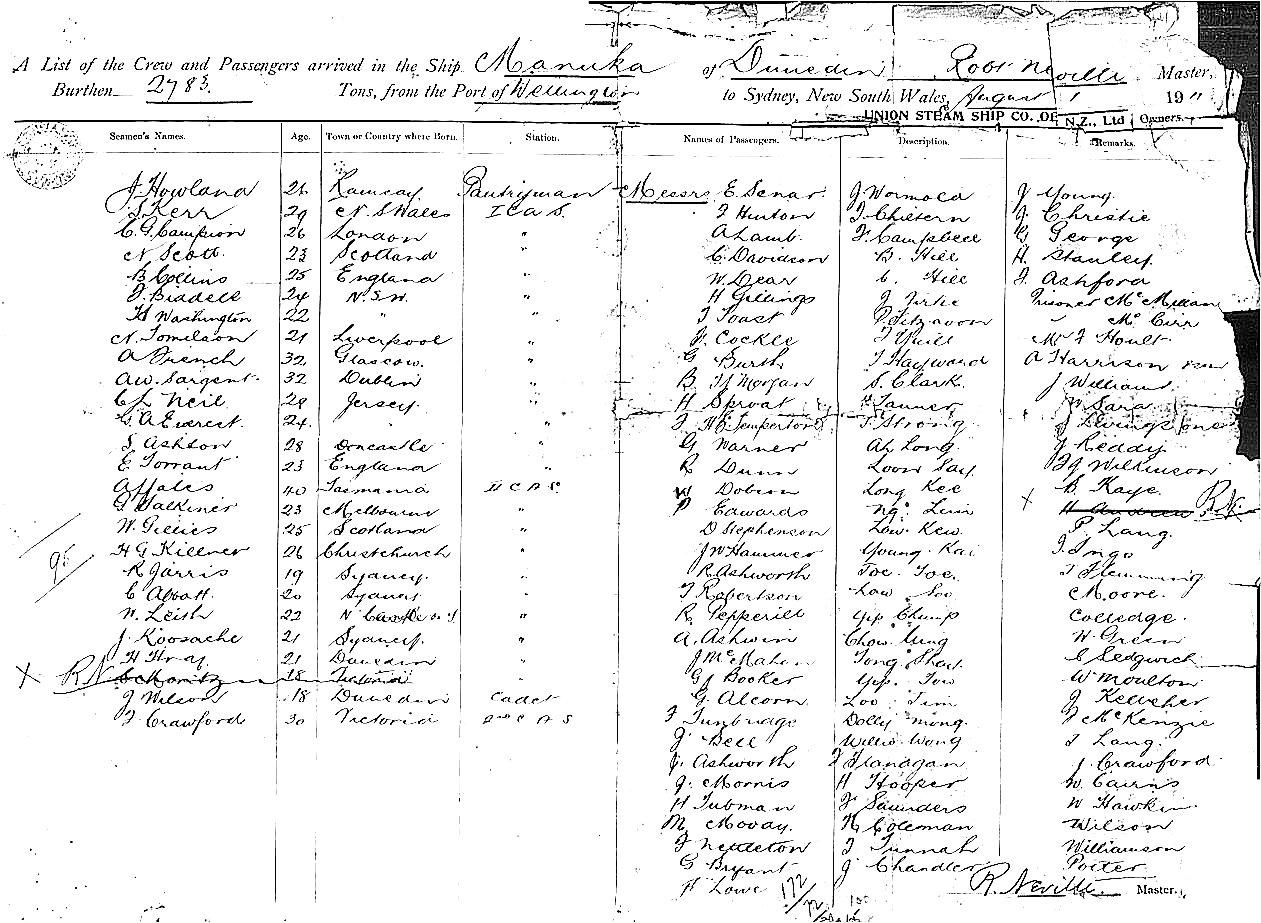 A List of the Crew and Passengers arrived in the Ship Manuka of Dunedin, Robt Neville Master,
Burthen 2783 Tons, from the Port of Wellington to Sydney, New South Wales, August 1 1911
UNION STEAM SHIP CO., OF N.Z., Ltd Owners.
Seamen's Names. Age. Town or Country where Born. Station. Names of Passengers. Description. Remarks.
J Howland 26 Ramsay Pantryman Messrs E. Senar J Wormald J Young
S Kerr 29 N S Wales I C A S. F Hinton F. Chiltern J. Christie
C. G. Campion 26 London " A Lamb. F. Campbell G George
N Scott. 23 Scotland " C. Davidson B. Hill H. Stanley
B Collins 25 England " W. Dear C. Hill F. Ashford
24 N. S. W. " H Gillings J Prisoner McMillan
H Washington 22 " " T Toast " Mc
N. Tomilson 21 Liverpool " F. Cockle T Mr F Hoult
A French 32 Glascow. " G Burth T Hayward A Harrison
A. W. Sargent. 32 Dublin " B. Morgan S. Clark J William
C L Neil 29 Jersey. " H Sproat Tanner Sara
G. A Everest 24. " " Temperton T Strong J Livingstone
S Ashton 28 Doncaster " G Warner Ah Long. J Reddy
E Torrant 23 England " R Dunn Loow Say. Wilkinson
40 Tasmania II C A S. W Dobson Long Kee B. Kaye.
23 Melbourne " P Edwards Ng Lum X H Andrew R.N.
W. Gillies 25 Scotland " D Stephenson Low Kew P. Lang.
95 H G Killner 26 Christchurch " J W Hammer Young Kai
R Jarris 19 Sydney. " R. Ashworth Toe. Toe. T Flemming
C Abbott. 20 Sydney " T Robertson Low Soo Moore.
N. Leish 22 " R. Pepperill Yip Chump Colledge.
J. Koosache 21 Sydney. " A. Ashwin Chow Yung W. Green
H Hray 21 Dunedin " J McMahon Tong Shey. C Sedgwick
X R N S Moritz 18 Victoria " G J Booker Yip. Tow W Moulton
J Wilson 18 Dunedin Cadet G. Alcorn Loo Tim J Kelleher
J. Crawford 30 Victoria 2nd C A S F Tunbridge Dolly Mong. J McKenzie
J. Bell Willie Wong T Lang.
J. Ashworth F Flanagan J. Crawford
J. Morris H Hooper W. Cairns
H Tubman F Saunders W Hawkin
M. Movay. N Coleman Wilson
F Nettleton F Tunnah Williamson
G Bryant J Chandler Porter
H Lowe 172 R. Neville Master.